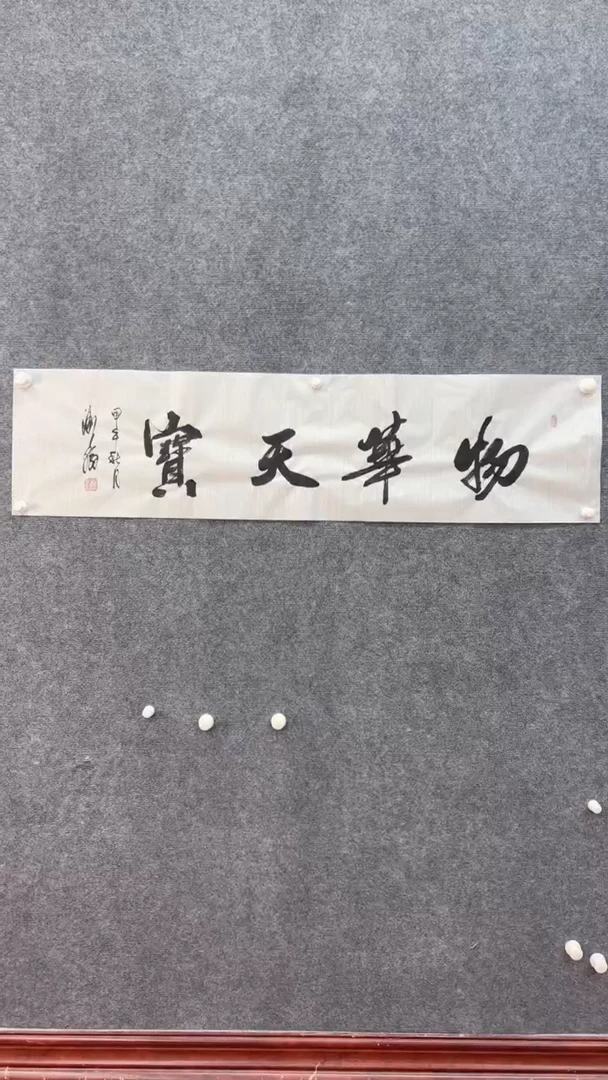 物華天寶
甲午秋月